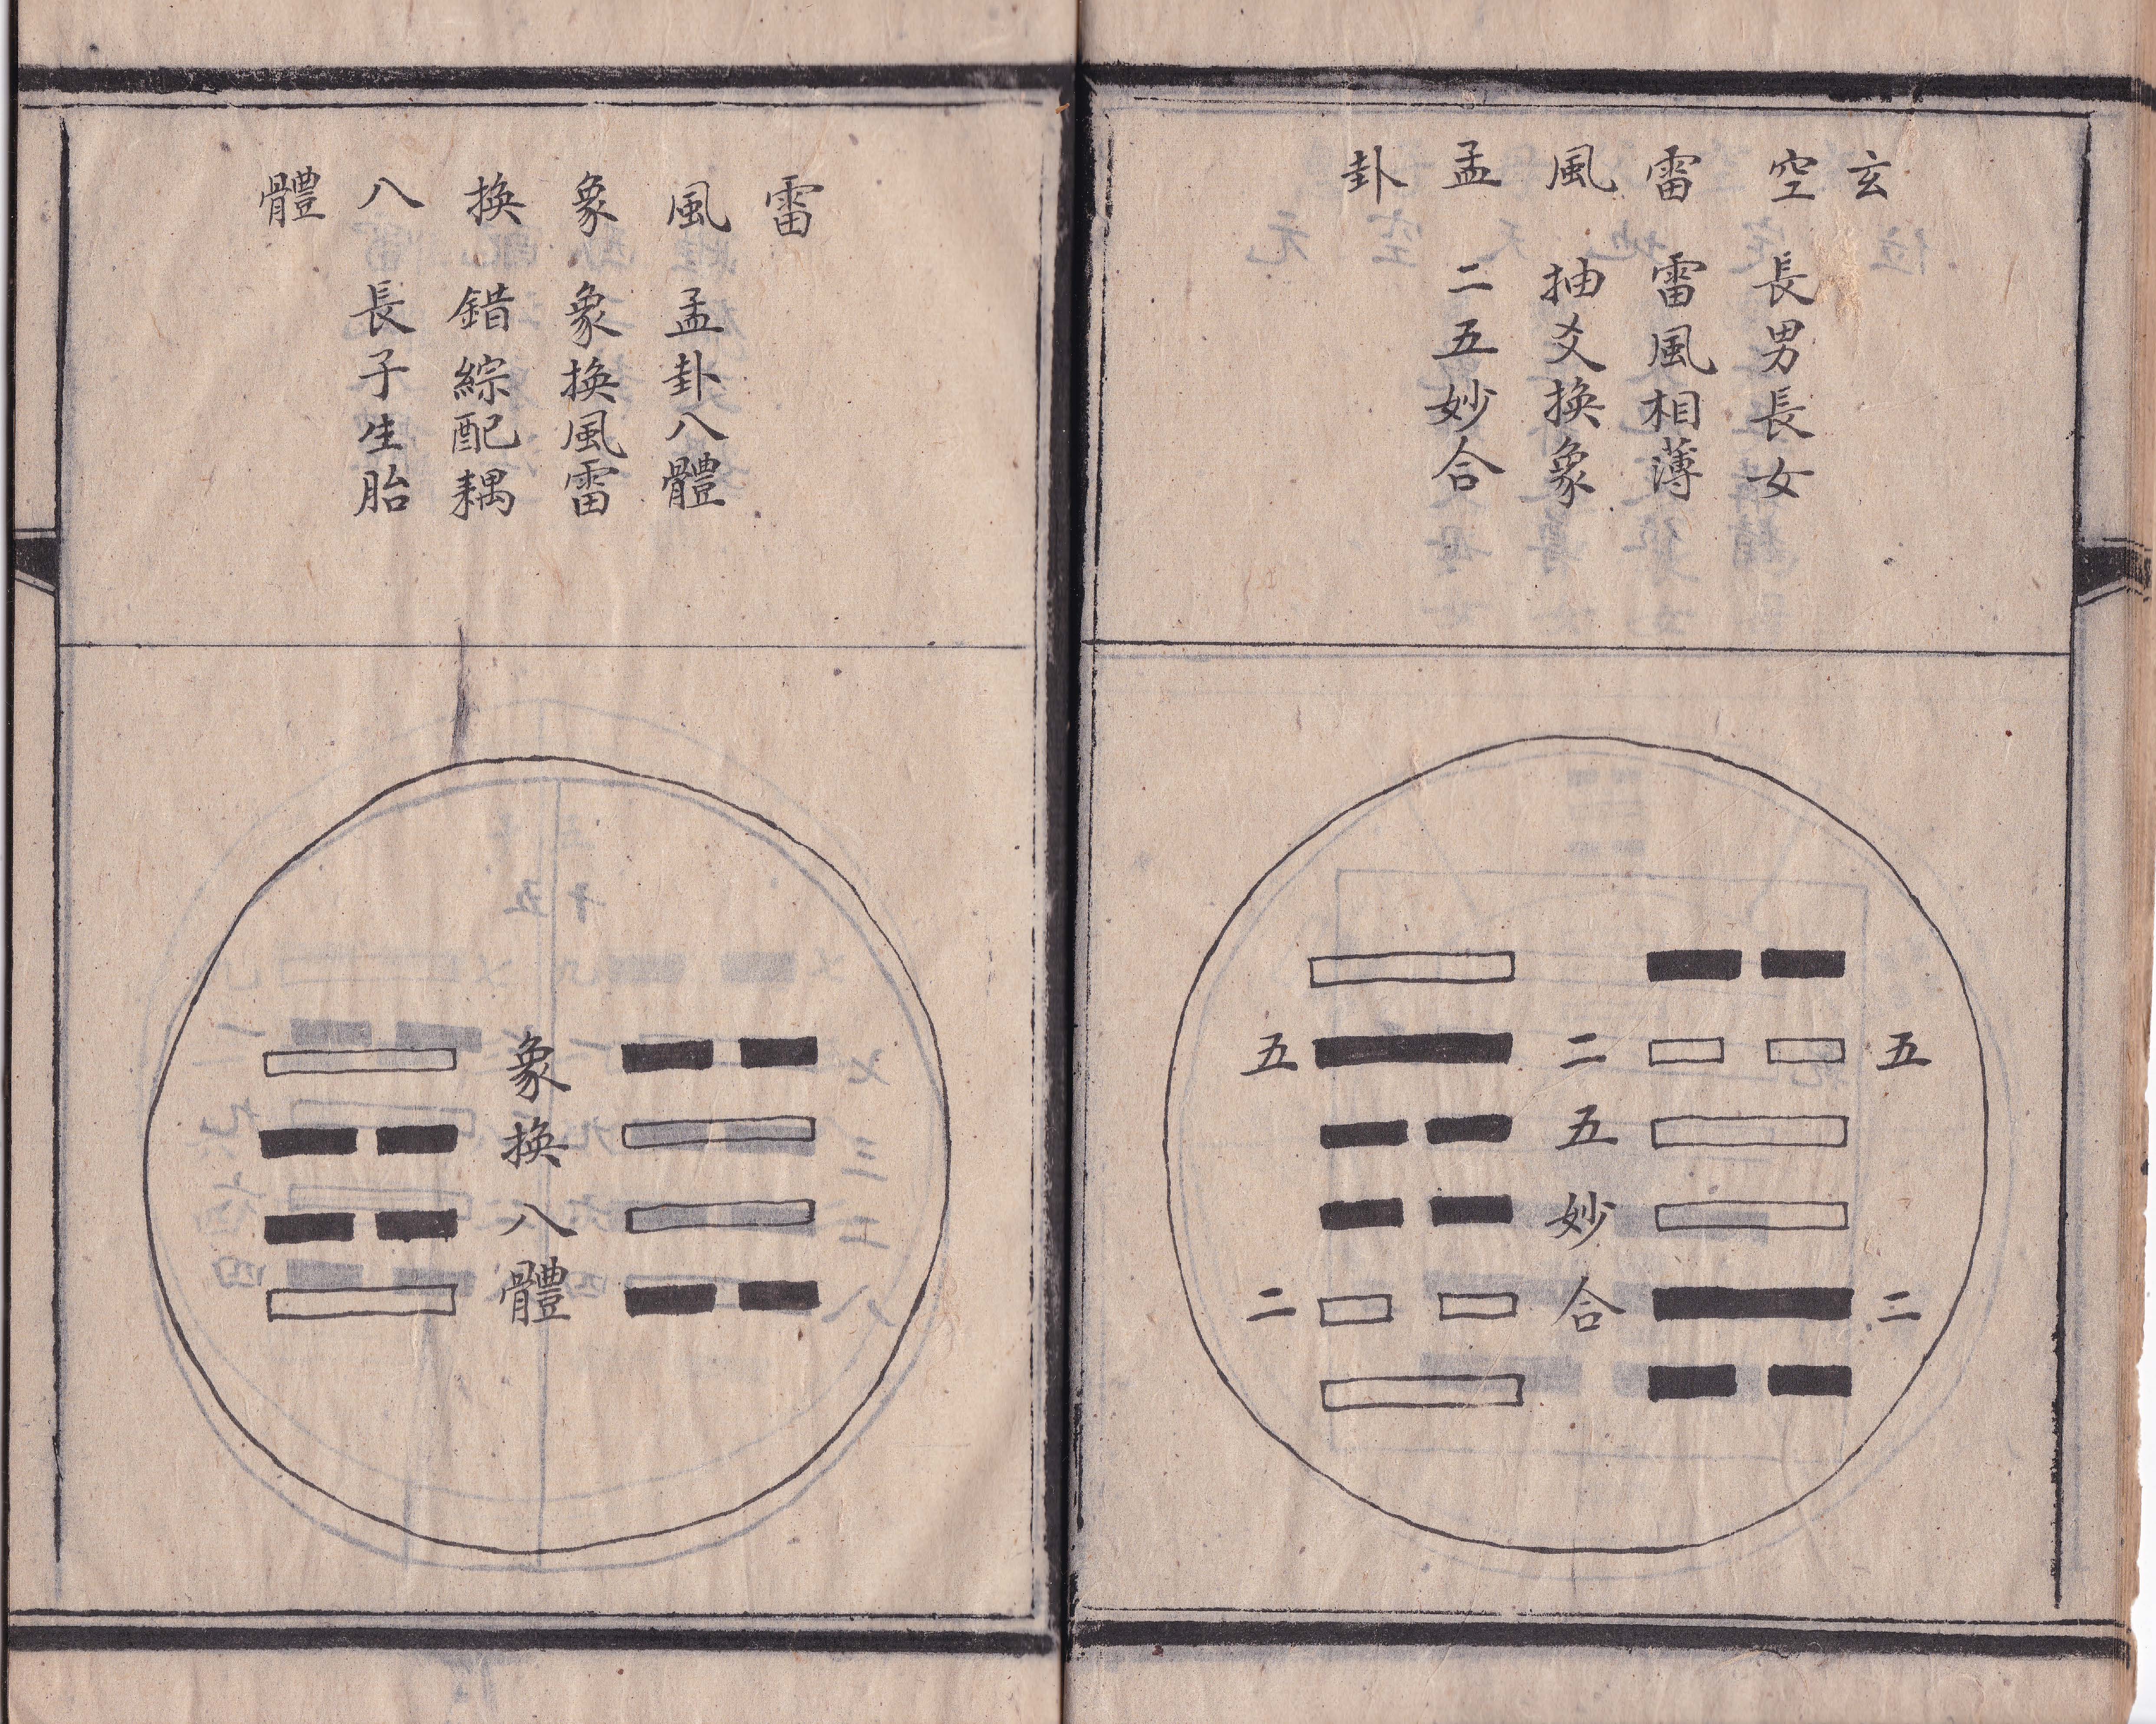 玄空雷風孟卦
長男長女
雷風相薄
抽爻換象
二五妙合
五 二 五
五
妙
二 合 二
雷風象換八體
孟卦八體
象換風雷
錯綜配耦
長子生胎
象換八體